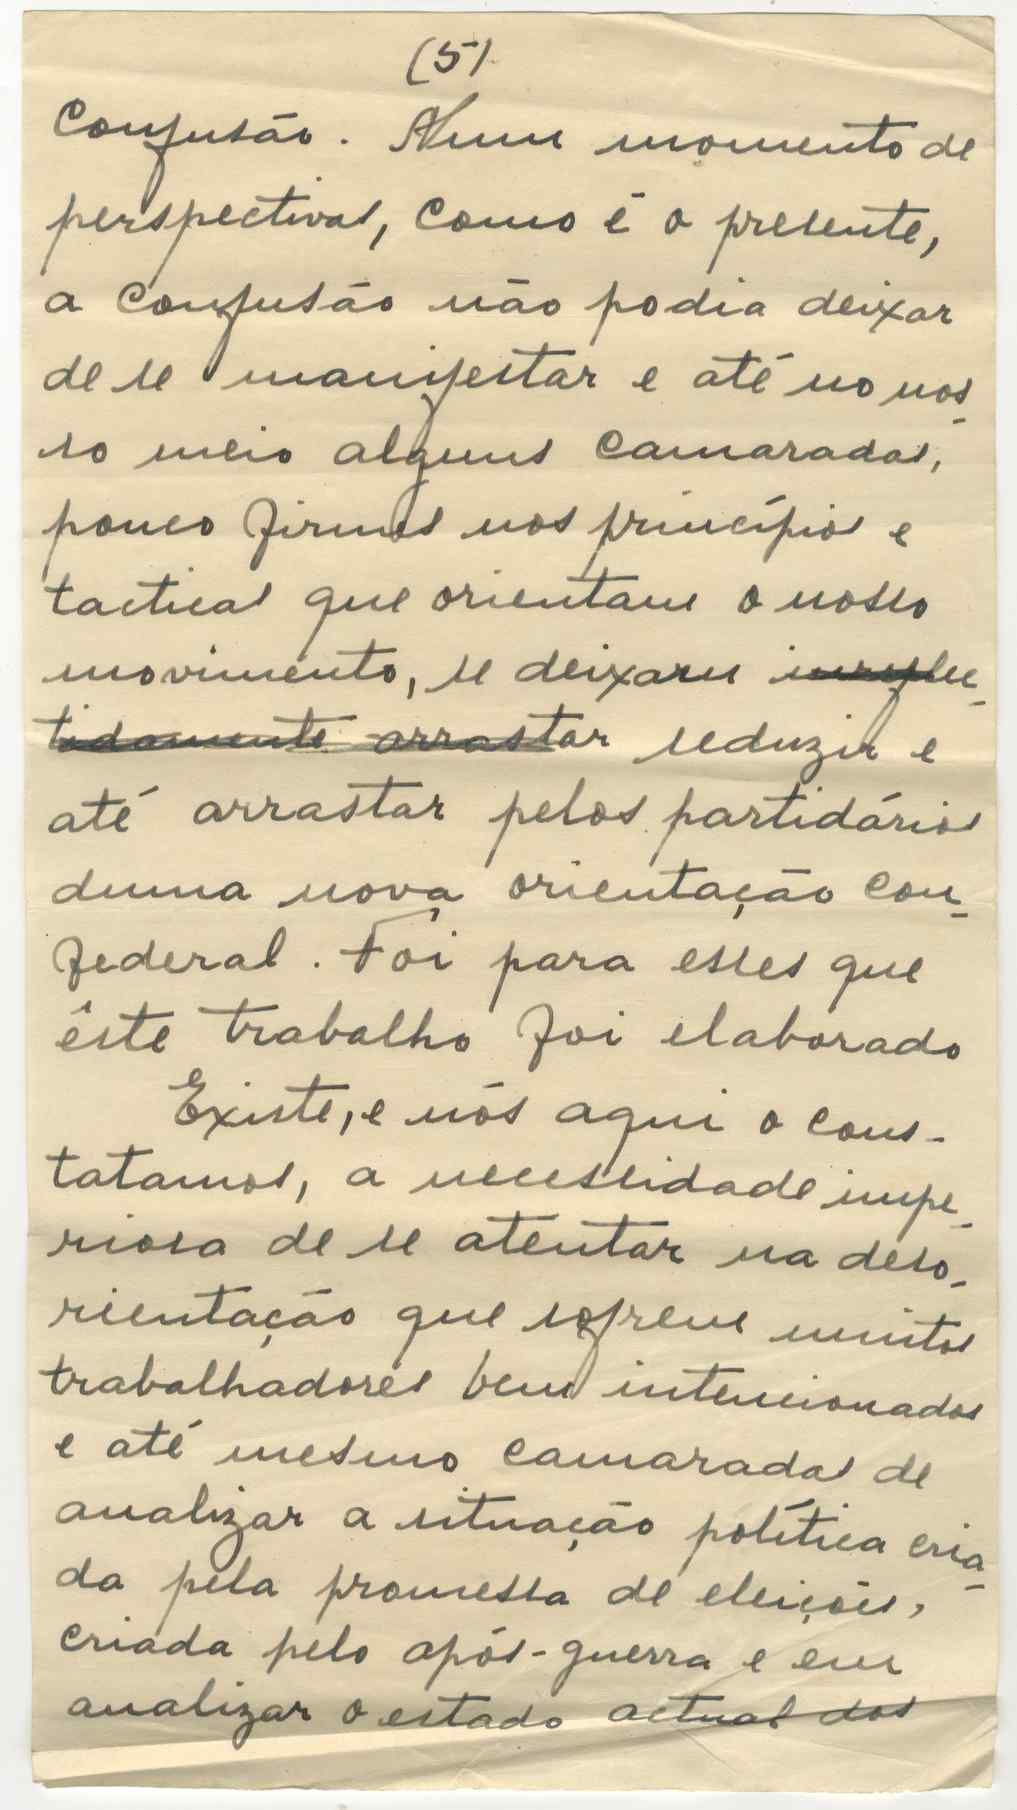 (5).
Confusão. Num momento de
perspectivas, como é o presente,
a confusão não podia deixar
de se manifestar e até no nos-
so meio alguns camaradas,
pouco firmes nos princípios e
tacticas que orientam o nosso
movimento, se deixam irreflec-
tidamente arrastar seduzir e
até arrastar pelos partidários
duma nova orientação con-
federal. Foi para esses que
êste trabalho foi elaborado
Existe, e nós aqui o cons-
tatamos, a necessidade impe-
riosa de se atentar na deso-
rientação que sofrem muitos
trabalhadores bem intencionados
e até mesmo camaradas de
analizar a situação política cria-
da pela promessa de eleições,
criada pelo após-guerra e em
analizar o estado actual dos